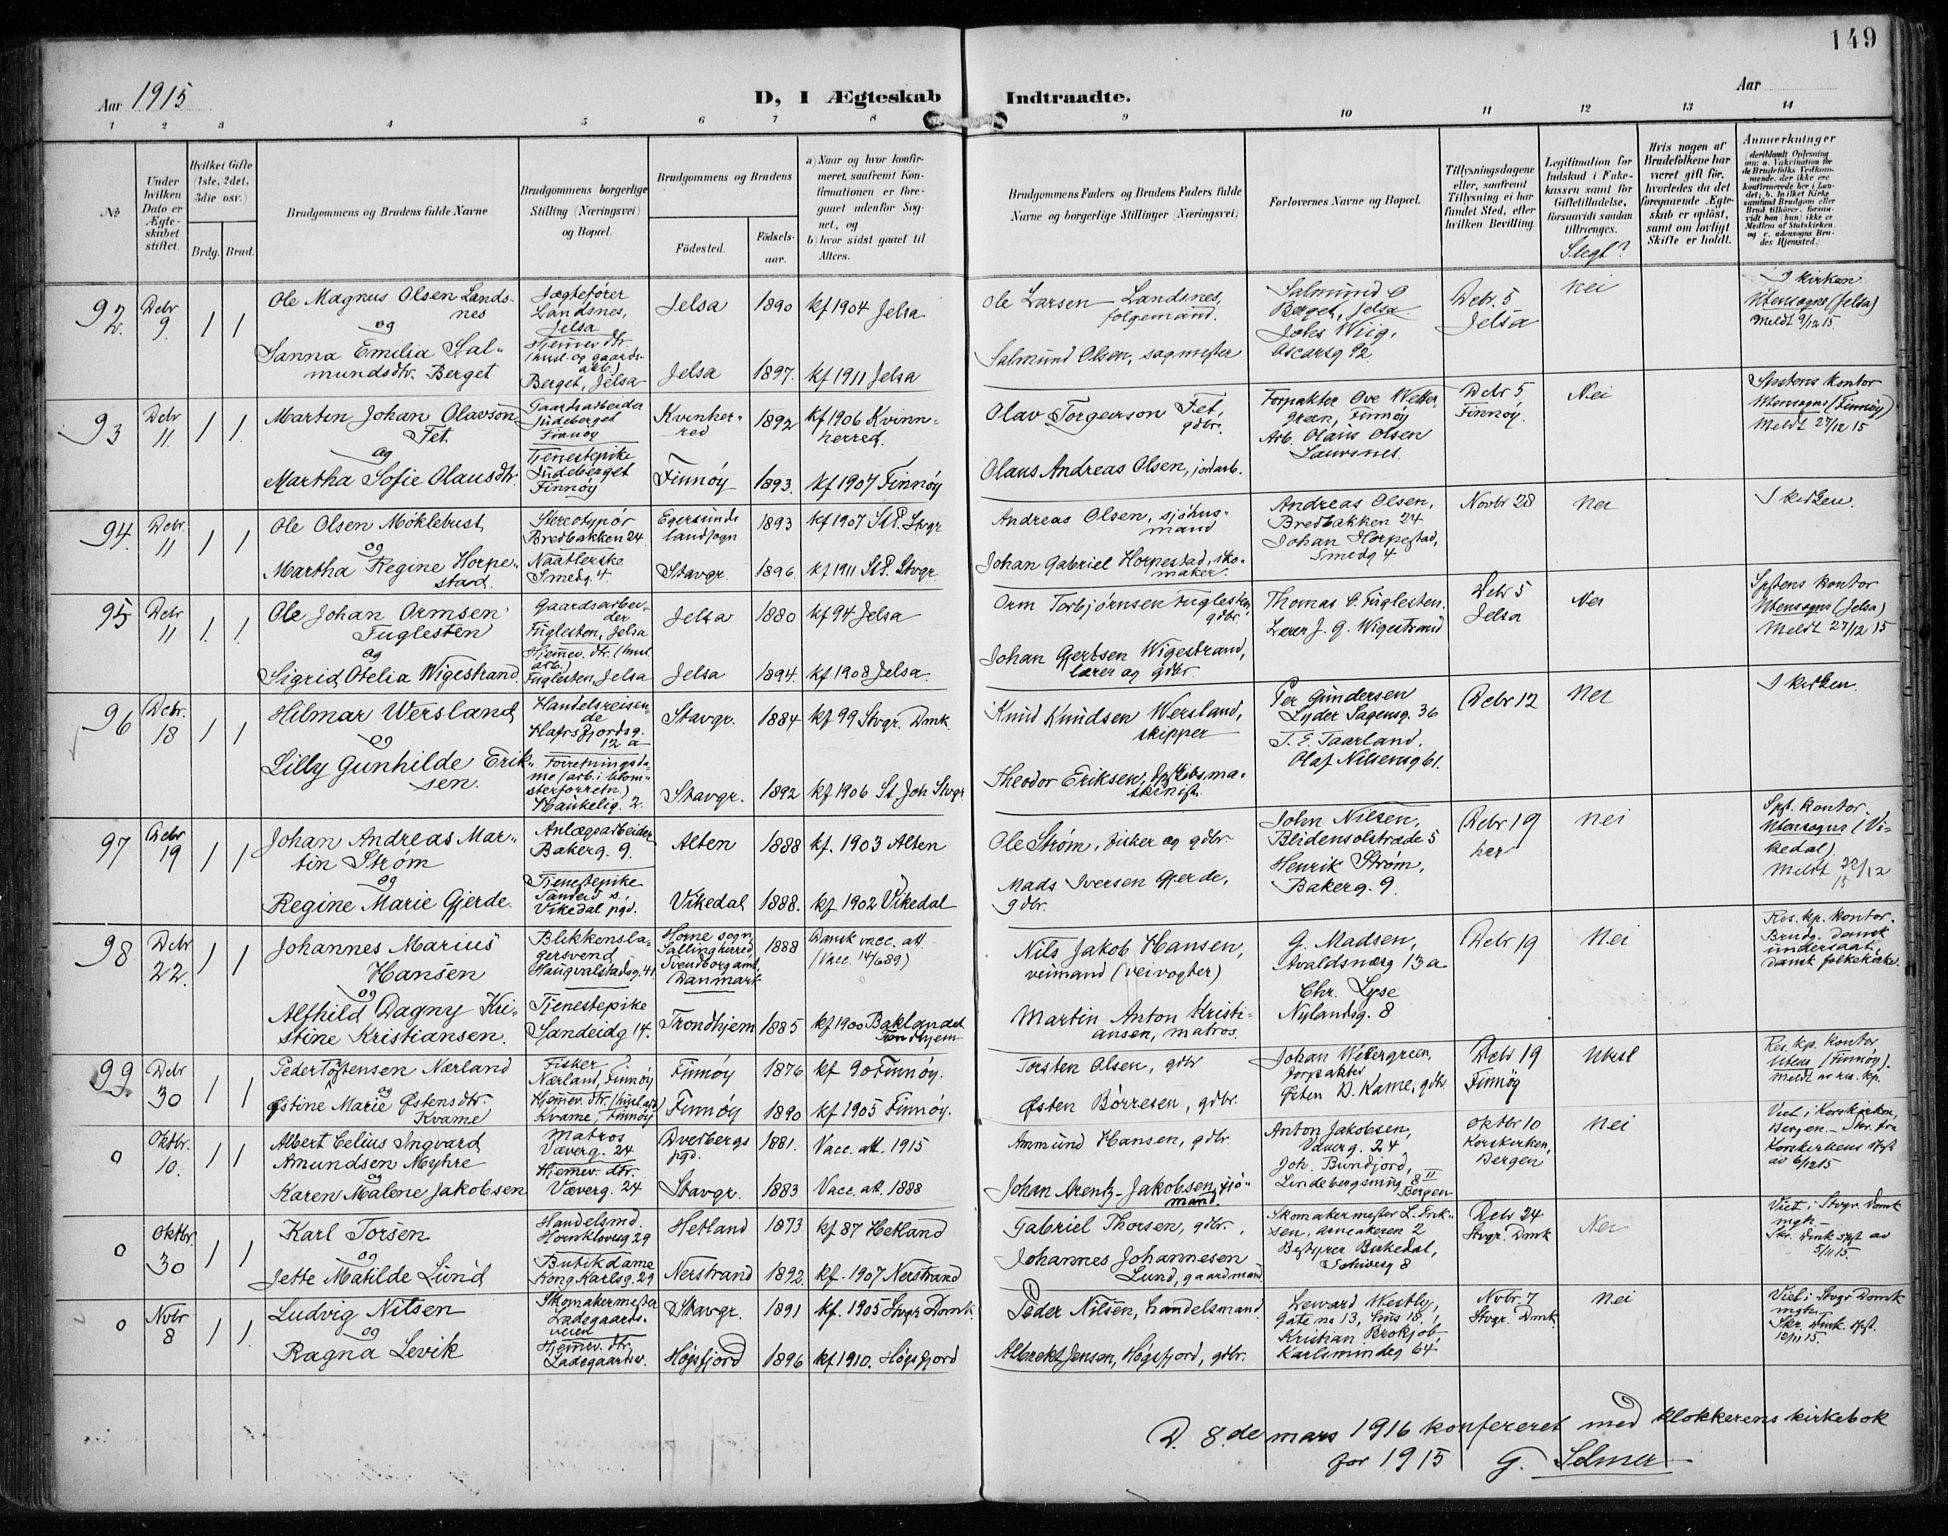 149
Aar 1915
D, I Ægteskab Indtraadte.
Aar
1 2 3 4 5 6 7 8 9 10 11 12 13 14
No
Under hvilken Dato er Ægteskabet stiftet.
Hvilket Gifte (1ste, 2det, 3die osv.)
Brdg. Brud.
Brudgommens og Brudens fulde Navne
Brudgommens borgerlige Stilling (Næringsvei) og Bopæl.
Brudgommens og Brudens
Fødested. Fødselsaar.
a) Naar og hvor konfirmeret, saafremt Konfirmationen er foregaaet udenfor Sognet, og
b) hvor sidst gaaet til Alters.
Brudgommens Faders og Brudens Faders fulde Navne og borgerlige Stillinger (Næringsvei)
Forlovernes Navne og Bopæl.
Tillysningsdagene eller, saafremt Tillysning ei har fundet Sted, efter hvilken Bevilling.
Legitimation for Indskud i Enkekassen samt for Giftetilladelse, forsaavidt saadan tiltrænges.
Slegt?
Hvis nogen af Brudefolkene har været gift før, hvorledes da det foregaaende Ægteskab er opløst, samt om lovligt Skifte er holdt.
Anmerkninger
92 Debr 9 1 1
Ole Magnus Olsen Landsnes
og
Sanna Emilia Salmundsdtr. Berget
Jægtefører Landsnes, Jelsa
Hjemmev dtr. (husl. og gaardsarb.) Berget, Jelsa
Jelsa 1890 kf 1904 Jelsa
Jelsa 1897. kf 1911 Jelsa
Ole Larsen Landsnes, følgemand.
Salmund Olsen, sagmester
Salmund O Berget, Jelsa
Johs Wiig, Oscarsg 92
Debr. 5 Jelsa
Nei
I kirken
Utensogns (Jelsa)
Meldt 9/12 15.
93 Debr 11 1 1.
Martin Johan Olavson Fet.
og
Martha Sofie Olausdtr.
Gaardsarbeider Judeberget Finnøy
Tjenestepike Judeberget Finnøy
Kvinherred 1892 kf 1906 Kvinnherred.
Finnøy 1893. kf 1907 Finnøy
Olav Torgerson Fet, gdbr.
Olaus Andreas Olsen, jordarb.
Forpakter Ove Wettergreen, Finnøy
Arb. Olaus Olsen Lauvsnes.
Debr 5 Finnøy.
Nei
Sptens kontor
Utensogns (Finnøy)
Meldt 27/12 15
94. Debr. 11 1 1
Ole Olsen Møklebust,
og
Martha Regine Horpestad.
Stereotypør Bredbakken 24.
Naatlerske Smedg 4.
Egersunds landsogn 1893 kf 1907 St.P. Stvgr
Stavgr. 1896. kf 1911 St P. Stvgr.
Andreas Olsen, sjøhusmand
Johan Gabriel Horpestad, skomaker.
Andreas Olsen, Bredbakken 24
Johan Horpestad, Smedg 4
Novbr 28
Nei
I kirken.
95 Debr 11 1. 1.
Ole Johan Ormsen Fuglesten
og
Sigrid Otelia Wigestrand.
Gaardsarbeider Fuglesten, Jelsa
Hjemmev. dtr. (husl. arb.) Fuglesten, Jelsa
Jelsa 1880 kf 94 Jelsa
Jelsa 1894. kf 1908 Jelsa.
Orm Torbjørnsen Fuglesten gdbr.
Johan Gjertsen Wigestrand, lærer og gdbr.
Thomas O. Fuglesten.
Lærer J. G. Wigestrand
Debr 5 Jelsa
Nei
Sptens kontor
Utensogns (Jelsa)
Meldt 27/12 15
96 Debr. 18 1 1
Hilmar Wersland
og
Lilly Gunhilde Eriksen.
Handelsreisende Hafrsfjordsg. 12 a
Forretningsdame (arb. i blomsterforretn.) Haukelig. 2.
Stavgr. 1884 kf 99 Stvgr. Dmk.
Stavgr. 1892 kf 1906 St Joh Stvgr
Knud Knudsen Wersland, skipper
Theodor Eriksen, skibsmaskinist.
Per Gundersen Lyder Sagensg. 36
T. E. Taarland, Olaf Nilsensg 61.
Debr 12
Nei
I kirken.
97 Debr 19 1 1
Johan Andreas Martin Strøm
og
Regine Marie Gjerde.
Anlægsarbeider Bakerg. 9.
Tjenestepike Sandeid s., Vikedal pgd.
Alten 1888 kf. 1903 Alten
Vikedal 1888. kf 1902 Vikedal
Ole Strøm, fisker og gdbr.
Mads Iversen Gjerde, gdbr.
John Nilsen, Blidensolstræde 5
Henrik Strøm, Bakerg. 9.
Debr 19 her
Nei
Spt. kontor
Utensogns (Vikedal)
Meldt 22/12 15
98 Debr 22. 1 1
Johannes Marius Hansen
og
Alfhild Dagny Kristine Kristiansen.
Blikkenslagersvend Haugvalstadsg. 41
Tjenestepike Sandeidg 14.
Horne sogn, Sallingherred, Svendborg amt, Danmark 1888 Dansk vacc. att. (Vacc. 14/6 89)
Trondhjem 1885 kf 1900 Baklandet Trondhjem
Nils Jakob Hansen, veimand (veivogter)
Martin Anton Kristiansen, matros.
G. Madsen, Avaldsnærg 13 a
Chr. Lyse Nylandsg. 8
Debr 19
Nei
Res. kp. kontor.
Brudg. dansk undersaat, dansk folkekirke.
99. Debr 30 1 1
Peder Torstensen Nærland
og
Østine Marie Østensdtr. Kvame
Fisker Nærland, Finnøy
Hjemmev. dtr. (husl. arb) Kvame, Finnøy
Finnøy 1876 kf 90 Finnøy.
Finnøy 1890 kf 1905 Finnøy.
Torsten Olsen, gdbr
Østen Børresen, gdbr.
Johan Wettergreen, forpakter
Østen D. Kame, gdbr
Debr 19 Finnøy
Res. kp. kontor
Utens. (Finnøy).
Meldt av res. kp.
0 Oktbr. 10. 1 1
Albert Celius Ingvard Amundsen Myhre
og
Karen Malene Jakobsen
Matros Væverg. 24
Hjemmev. dtr. Væverg. 24
Dverbergs pgd. 1881. Vacc. att. 1915
Stavgr. 1883 Vacc. att. 1888
Ammund Hansen, gdbr.
Johan Arentz Jakobsen, sjømand.
Anton Jakobsen, Væverg. 24
Joh. Bundjord, Lindebergsmug 8 II Bergen
Oktbr 10 Korskirken, Bergen
Nei
Viet i Korskirken, Bergen - Skr. fra Korskirkens spst av 6/12 15
0 Oktbr. 30 1 1
Karl Torsen
og
Jette Matilde Lund
Handelsmd. Hornklovesg 29
Butikdame Kong Karlsg. 29
Hetland 1873 kf 87 Hetland
Nerstrand 1892. kf. 1907 Nerstrand
Gabriel Thorsen, gdbr.
Johannes Johannesen Lund, gaardmand
Skomakermester L. Eriksen, Arneageren 2
Bestyrer Birkedal,
24 Stvgr. Dmk
Nei
Viet i Stvgr Domk mgh. -
Skr. Dmk spst av 5/11 15
0 Novbr 8 1 1.
Ludvig Nilsen
og
Ragna Levik
Skomakermester Ladegaardsveien
Hjemmev. dtr. Ladegaardsv.
Stavgr. 1891 kf. 1905 Stvgr Domk.
Høgsfjord 1896 kf 1910. Høgsfjord
Peder Nilsen, handelsmand.
Albrekt Jensen, Høgsfjord, gdbr.
Leward Westby, Gate no 13, hus 18.
Kristian Brokjøb Karlsmindeg 64
Novbr. 7 Stvgr. Dmk.
Nei
Viet i Stvgr Domk mgh.
Skr. Dmk. spst. 12/11 15.
D. 8.de mars 1916 konfereret med klokkerens kirkebok
for 1915 G. Selmer